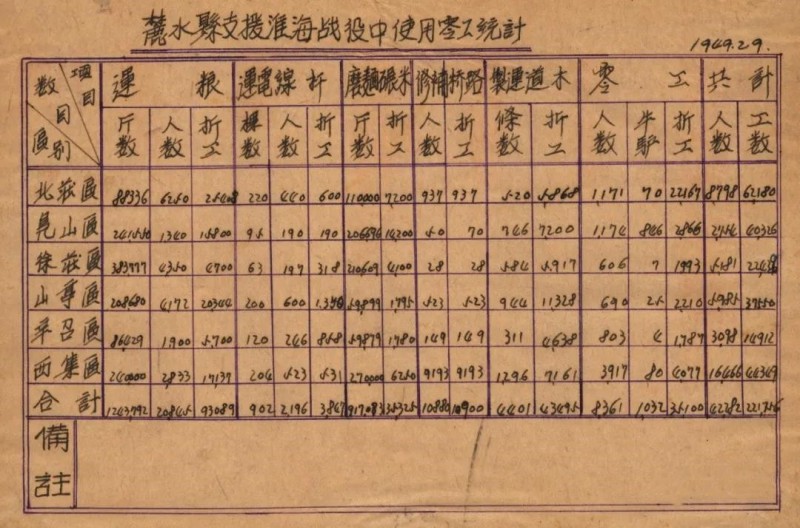 麓水縣支援淮海战役中使用零工統計
1949.2.9.
項目 數目 區別 運粮 運電線杆 磨麵碾米 修補桥路 製運道木 零工 共計
斤数 人数 折工 棵数 人数 折工 斤数 折工 人数 折工 條数 折工 人数 牛駅 折工 人数 工数
北莊區 88336 6250 25408 220 440 600 110000 7200 937 937 520 5868 1,171 70 22167 8798 62,180
山區 241550 1340 15800 95 190 190 206696 14,200 50 70 746 7200 1,174 846 2866 2754 40326
徐莊區 383777 4350 4700 63 197 318 210609 4,100 28 28 584 5917 606 7 1993 5181
山亭區 208680 4,172 20344 200 600 59,899 1,795 523 523 944 11328 690 25 2,210 5985 37550
平召區 86429 1,900 5,700 120 246 858 59879 1,780 149 149 311 4638 803 4 1,787 3098 14912
西集區 240000 2,833 17,137 204 523 531 270000 6250 9193 9193 1,296 7,161 3,917 80 4,077 16,466 44349
合計 1243,792 20845 93089 902 2,196 3,847 917,083 35325 10880 10900 4401 43495 8361 1,032 35,100 42282 221,756
備註